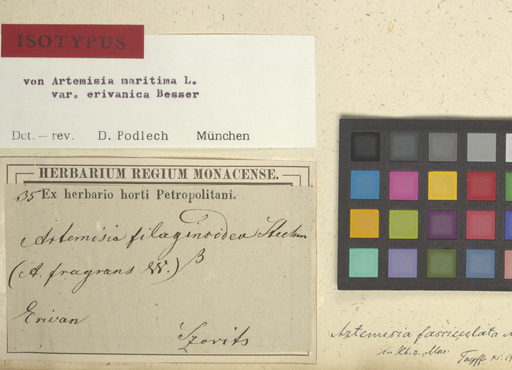 ISOTYPUS
von Artemisia maritima L.
var. erivanica Besser
Det. – rev. D. Podlech München
HERBARIUM REGIUM MONACENSE.
35 Ex herbario horti Petropolitani.
Artemisia filaginoidea
(A. fragrans W.) β
Erivan
Szovits
Artemisia fasciculata